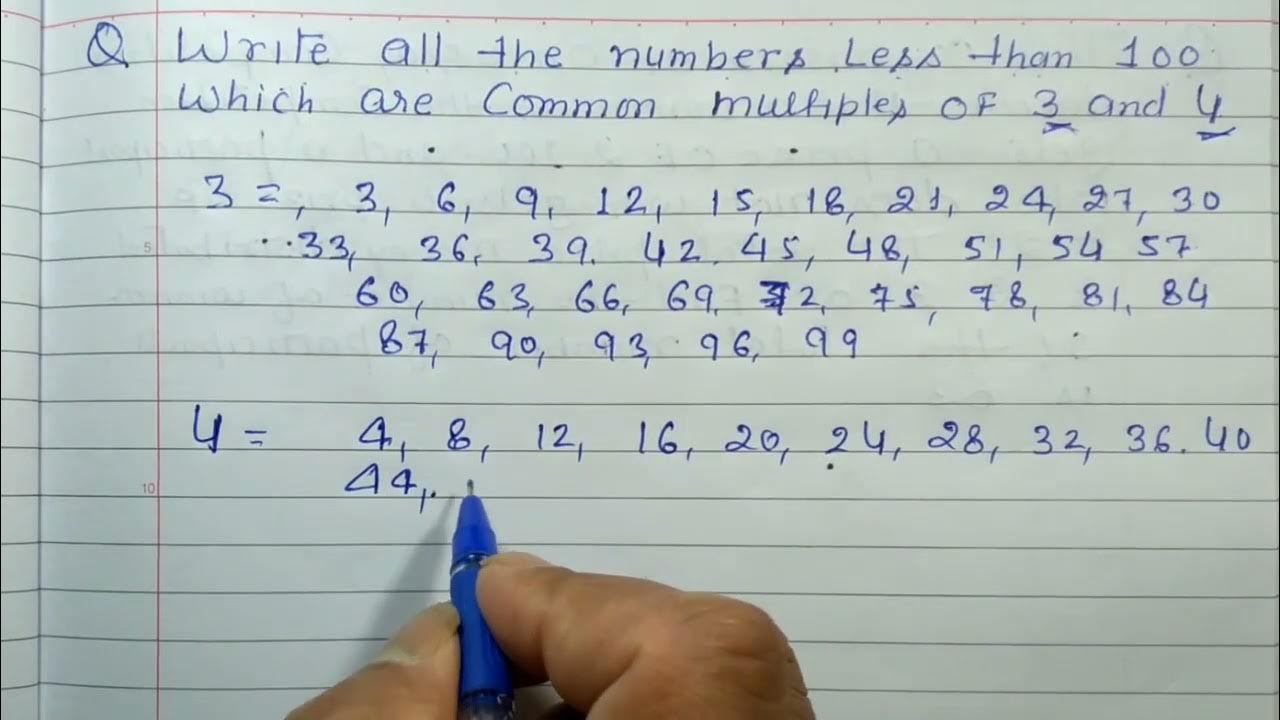 Q Write all the numbers less than 100
which are Common multiples OF 3 and 4
3 = , 3, 6, 9, 12, 15, 18, 21, 24, 27, 30
33, 36, 39. 42. 45, 48, 51, 54 57
5
60, 63, 66, 69, 72, 75, 78, 81, 84
87, 90, 93, 96, 99
4 = 4, 8, 12, 16, 20, 24, 28, 32, 36. 40
44,
10